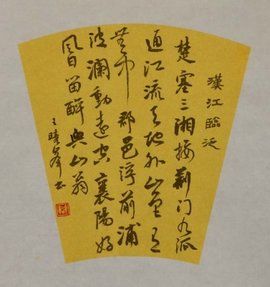 漢江臨泛
楚塞三湘接荆门九派
通江流天地外山色有
無中郡邑浮前浦
波瀾動遠空襄陽好
風日留醉與山翁